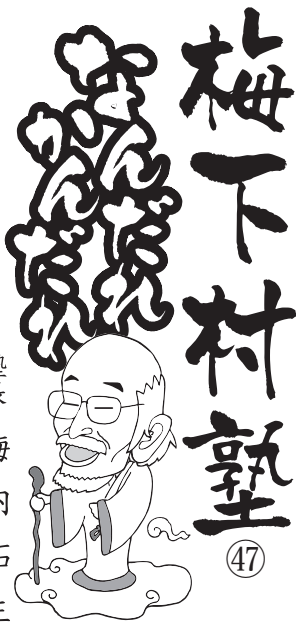 梅下村塾
㊼
なんだれ
かんだれ